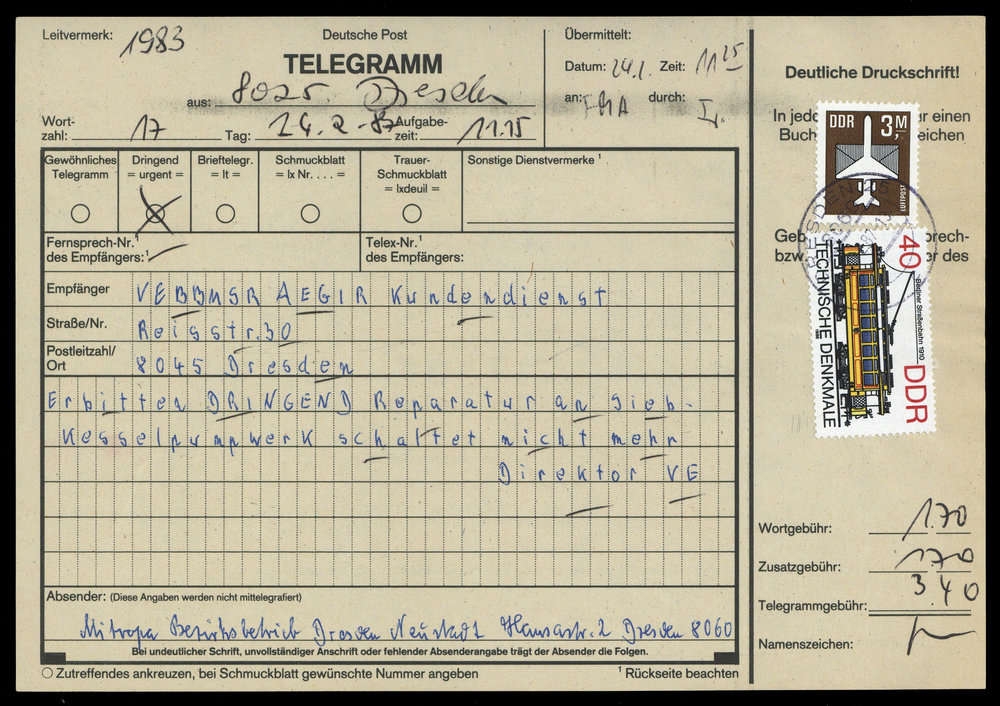 Leitvermerk: 1983
Deutsche Post
TELEGRAMM
aus: 8025 Dresden
Wort-
zahl: 17
Tag: 24.2.87
Aufgabe-
zeit: 11.15
Übermittelt:
Datum: 24/. Zeit: 11 25
an: durch:
Deutliche Druckschrift!
In jede r einen
Buch eichen
Geb prech-
bzw. er des
DDR 3,- M
LUFTPOST
DRESDEN 25
40
Berliner Straßenbahn 1910
TECHNISCHE DENKMALE
DDR
Gewöhnliches
Telegramm
Dringend
= urgent =
Brieftelegr.
= lt =
Schmuckblatt
= lx Nr. . . . =
Trauer-
Schmuckblatt
= lxdeuil =
Sonstige Dienstvermerke ¹
Fernsprech-Nr.¹
des Empfängers:
Telex-Nr.¹
des Empfängers:
Empfänger VEBBMSR AEGIR Kundendienst
Straße/Nr. Reisstr.30
Postleitzahl/
Ort 8045 Dresden
Erbitten DRINGEND Reparatur an Sieb-
Kesselpumpwerk schaltet nicht mehr
Direktor VE
Absender: (Diese Angaben werden nicht mittelegrafiert)
Mitropa Bezirksbetrieb Dresden Neustadt Hansastr. 2 Dresden 8060
Bei undeutlicher Schrift, unvollständiger Anschrift oder fehlender Absenderangabe trägt der Absender die Folgen.
Zutreffendes ankreuzen, bei Schmuckblatt gewünschte Nummer angeben
¹ Rückseite beachten
Wortgebühr: 1.70
Zusatzgebühr: 1.70
Telegrammgebühr: 3.40
Namenszeichen: